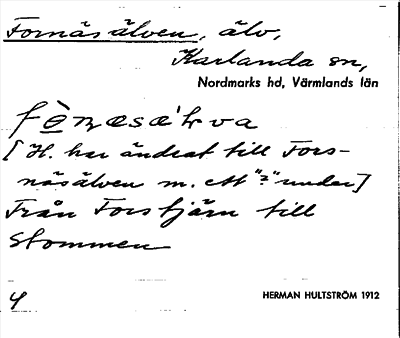 Fornäsälven, älv,
Karlanda sn,
Nordmarks hd, Värmlands län
[H. har ändrat till Fors-
näsälven m. ett "?" under]
Från Forstjärn till
Stommen
4
HERMAN HULTSTRÖM 1912